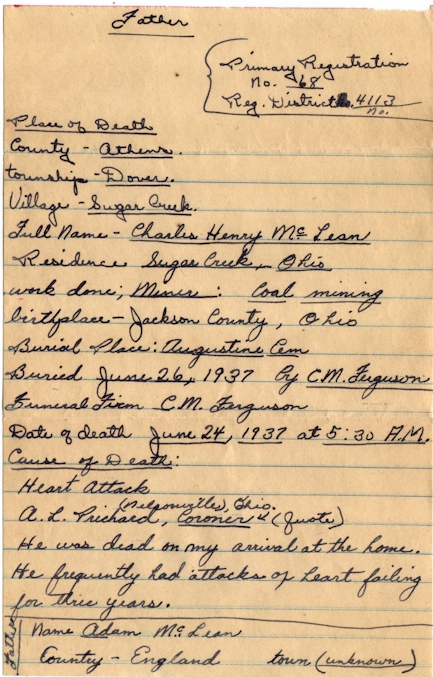 Father
Primary Registration
No. 68
Reg. District No. 4113
No.
Place of Death
County - Athens.
township - Dover.
Village - Sugar Creek.
Full Name - Charles Henry McLean
Residence Sugar Creek, Ohio
work done; Miner: Coal mining
birthplace - Jackson County, Ohio
Burial Place: Augustine Cem
Buried June 26, 1937 by C.M. Ferguson
Funeral Firm C.M. Ferguson
Date of death June 24, 1937 at 5:30 A.M.
Cause of Death:
Heart Attack
(Nelsonville), Ohio.
A. L. Prichard, Coroner (Quote)
He was dead on my arrival at the home.
He frequently had attacks of heart failing
for three years.
Father
Name Adam McLean
Country - England town (unknown)